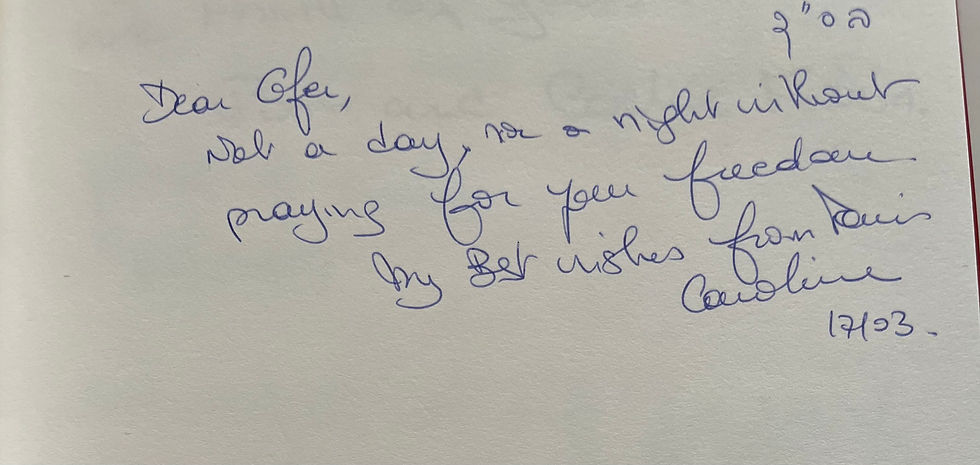 בס"ד
Dear Ofer,
Not a day, nor a night without
praying for your freedom
My Best wishes from Paris
Caroline
17/03.